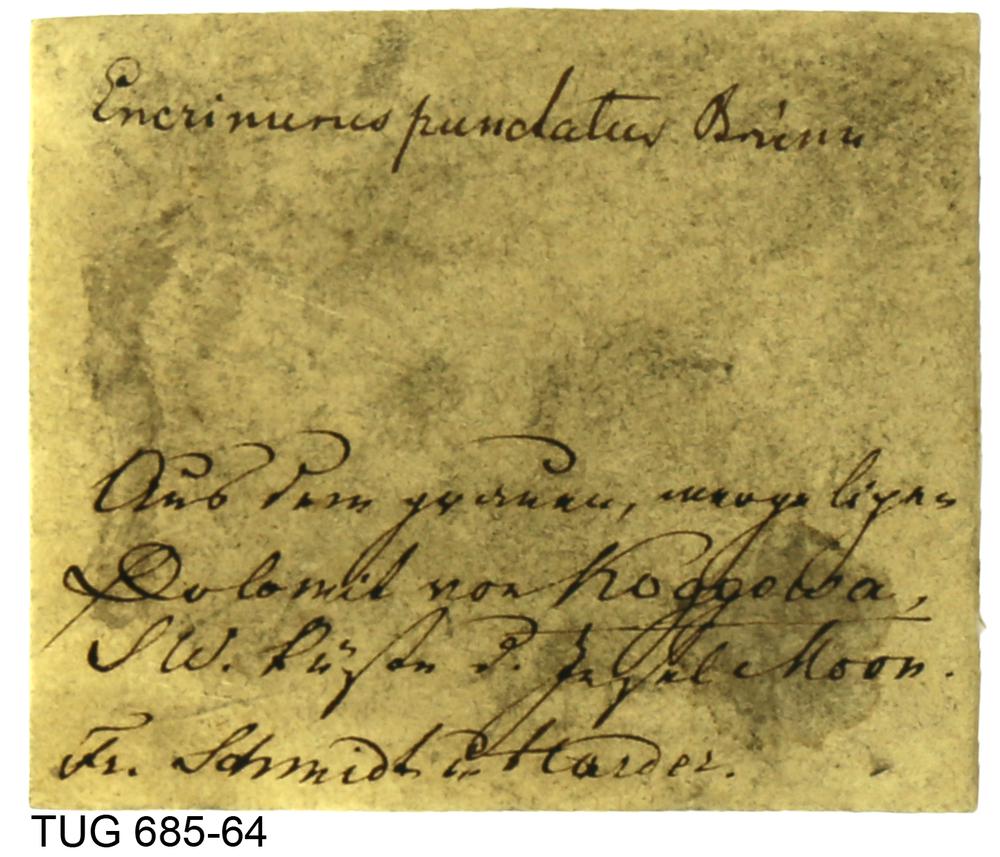 Encrinurus punctatus Brünn
Aus dem grauen, mergeligen
Dolomit von Koggowa,
SW. Küste d. Insel Moon.
Fr. Schmidt u Harder.
TUG 685-64